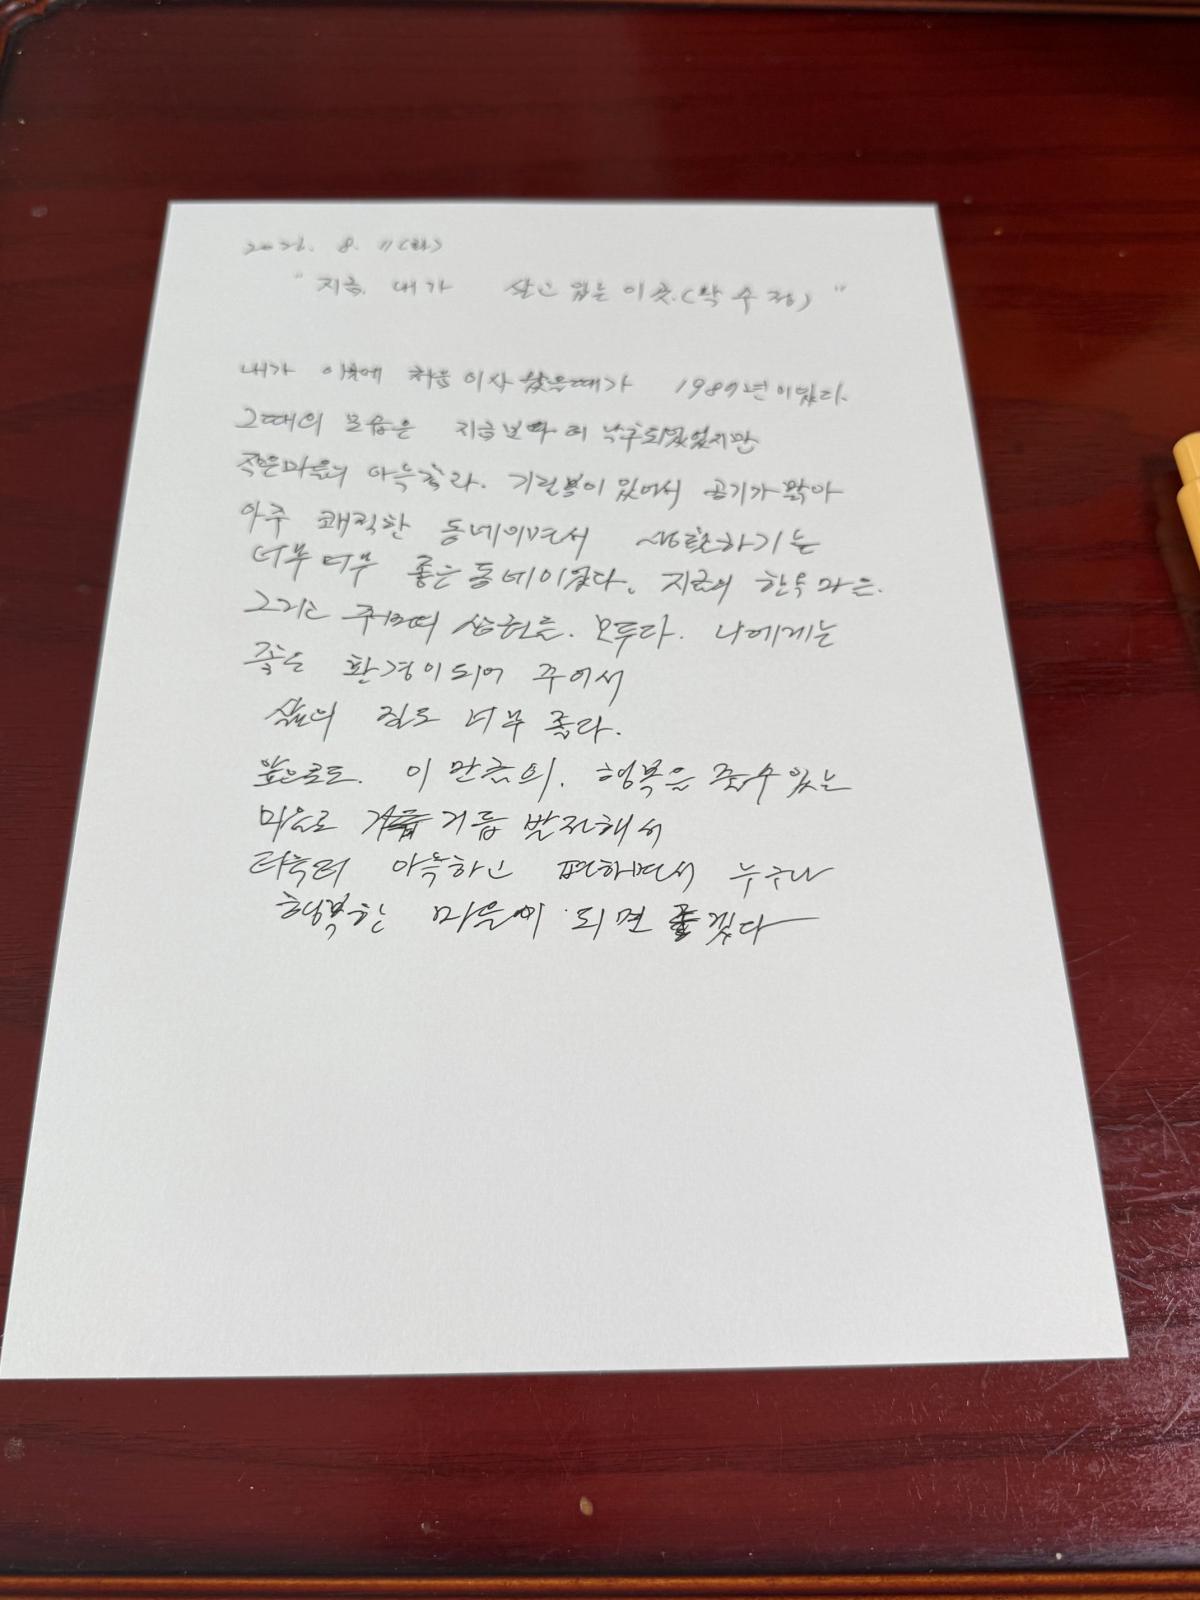 2026. 8. 11(화)
"지금. 내가 살고 있는 이곳.(박수정)"
내가 이곳에 처음 이사 왔을때가 1989년이었다.
그때의 모습은 지금보다 더 낙후되었었지만
작은마을의 아늑함과. 기린봉이 있어서 공기가 맑아
아주 쾌적한 동네이면서 산책하기는
너무너무 좋은 동네이었다. 지금의 한옥마을.
그리고 주변의 상권들. 모두다. 나에게는
좋은 환경이되어 주어서
삶의 질도 너무 좋다.
앞으로도. 이 만큼의. 행복을 줄수 있는
마을로 거듭 발전해서
더욱더 아늑하고 편하면서 누구나
행복한 마을이 되면 좋겠다